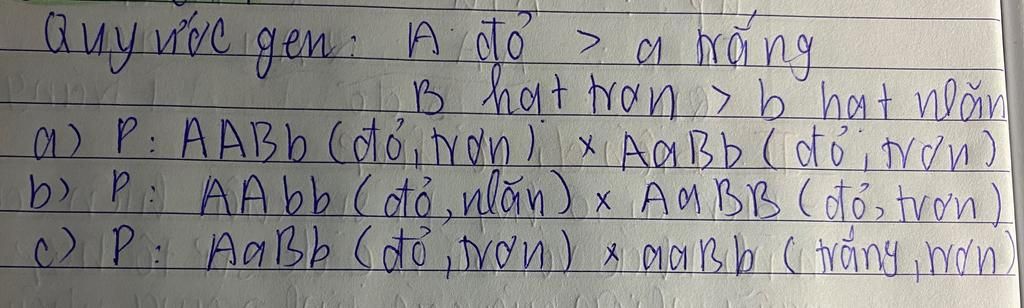 Quy ước gen: A đỏ > a trắng
B hạt trơn > b hạt nhăn
a) P: AABb (đỏ, trơn) x AaBb (đỏ, trơn)
b) P: AAbb (đỏ, nhăn) x AaBB (đỏ, trơn)
c) P: AaBb (đỏ, trơn) x aaBb (trắng, trơn)